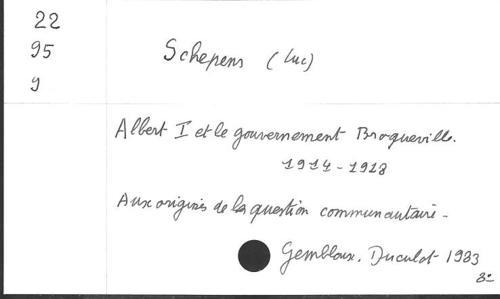 22
95
9
Schepens (Luc)
Albert I et le gouvernement Broqueville.
1914-1918
Aux origines de la question communautaire-
Gembloux. Duculot 1983
8°